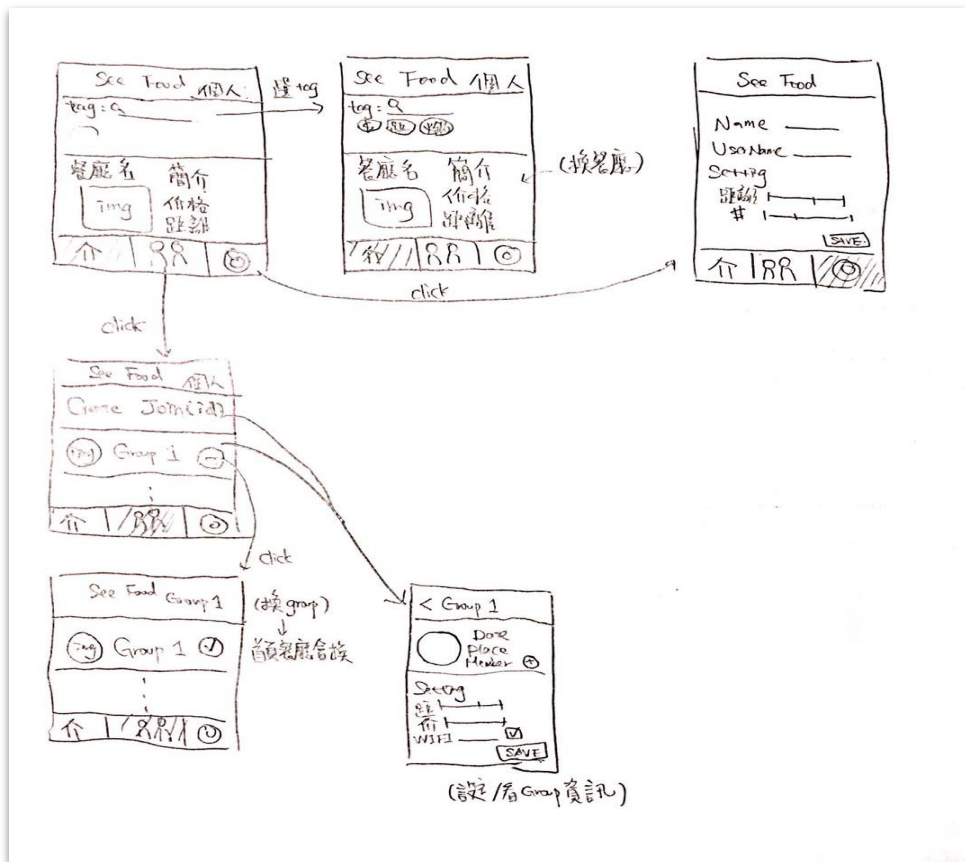 See Food 個人
tag:
餐廳名 簡介
img 价格
距離
介
選tag
See Food 個人
tag:
餐廳名 簡介
img 价格
距離
(換餐廳)
See Food
Name
UserName
Setting
距離
$
SAVE
介
click
click
See Food 個人
Join(id)
img Group 1
介
click
See Food Group 1
img Group 1
介
(換group)
首頁餐廳會換
< Group 1
Date
Place
Member
Setting
距
价
WIFI
SAVE
(設定/看Group資訊)